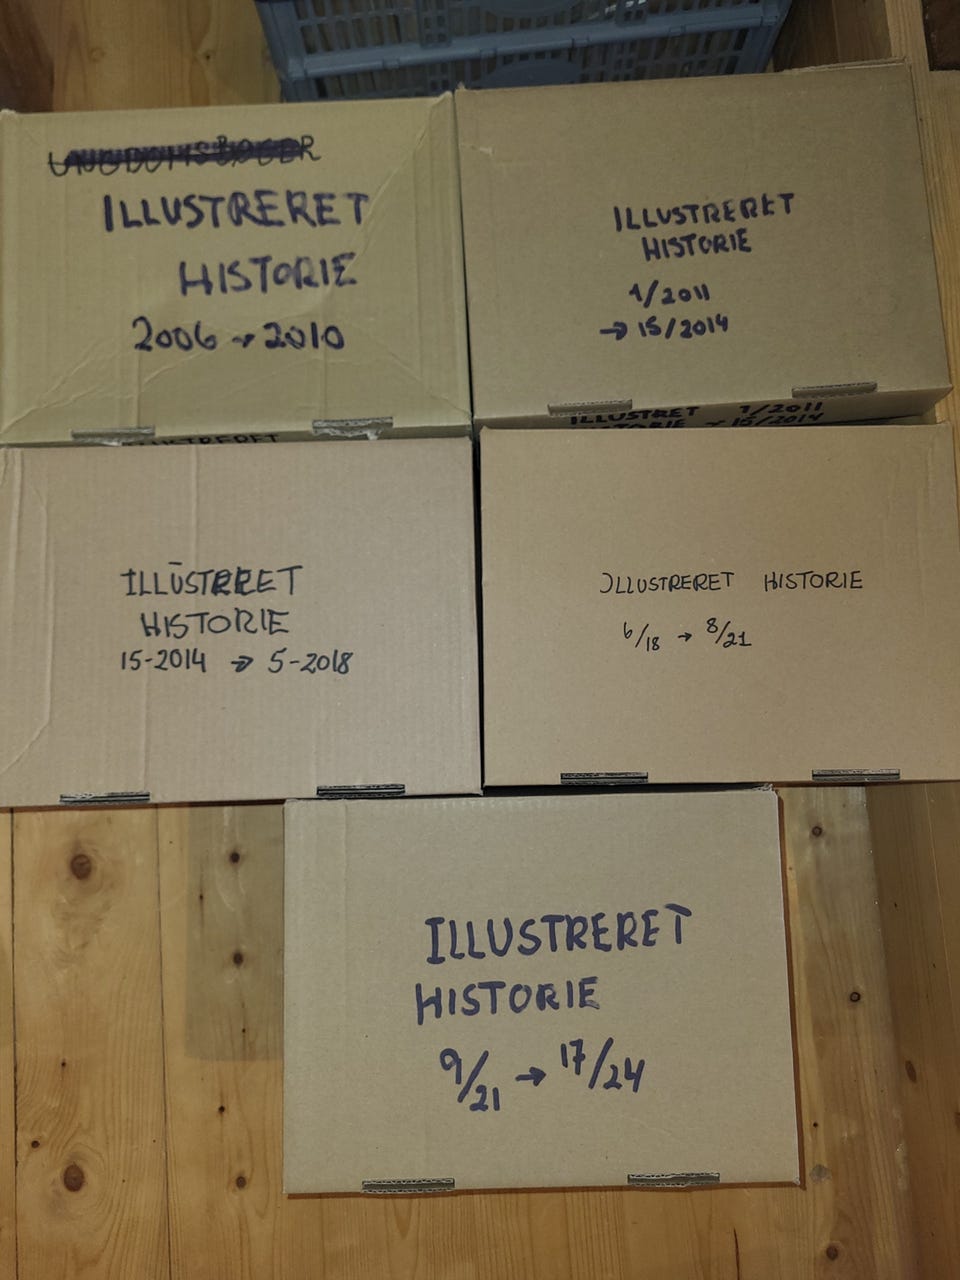 UNGDOMSBØGER
ILLUSTRERET
HISTORIE
2006 → 2010
ILLUSTRERET
HISTORIE
1/2011
→ 15/2014
ILLUSTRET 1/2011
→ 15/2014
ILLUSTRERET
HISTORIE
15-2014 → 5-2018
ILLUSTRERET HISTORIE
6/18 → 8/21
ILLUSTRERET
HISTORIE
9/21 → 17/24